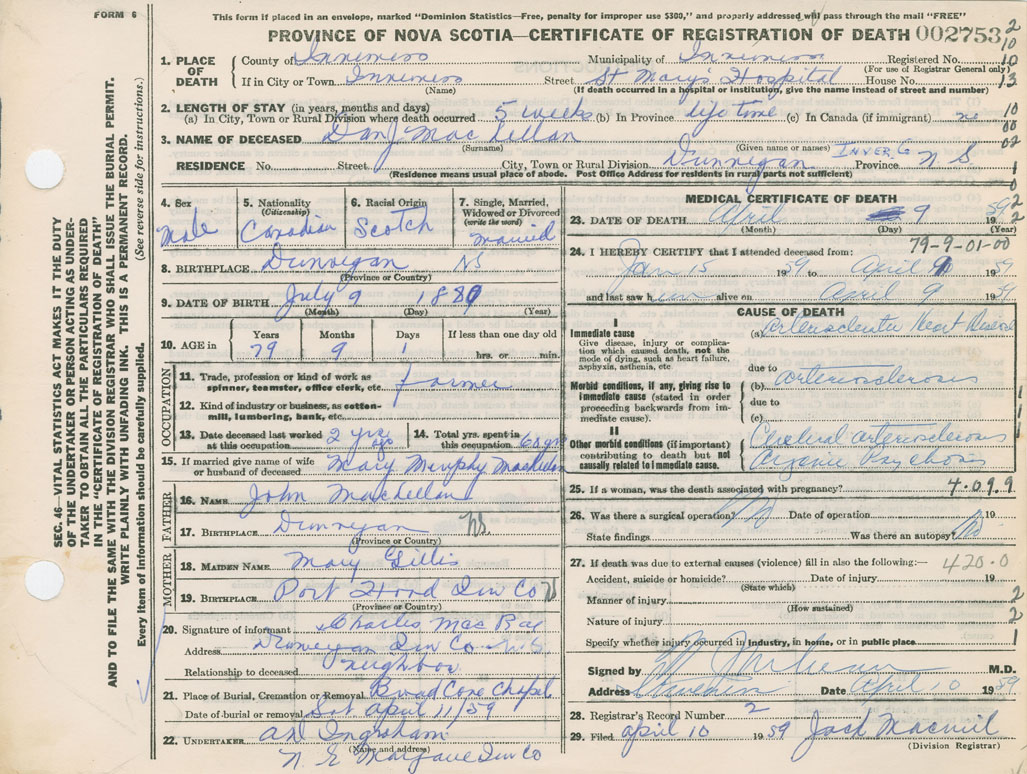 FORM 6
This form if placed in an envelope, marked "Dominion Statistics—Free, penalty for improper use $300," and properly addressed will pass through the mail "FREE"
PROVINCE OF NOVA SCOTIA—CERTIFICATE OF REGISTRATION OF DEATH 002753
1. PLACE OF DEATH
County of Inverness Municipality of Inverness Registered No.
(For use of Registrar General only)
If in City or Town Inverness Street St Mary's Hospital House No.
(Name) (If death occurred in a hospital or institution, give the name instead of street and number)
2. LENGTH OF STAY (in years, months and days)
(a) In City, Town or Rural Division where death occurred 5 weeks (b) In Province life time (c) In Canada (if immigrant)
3. NAME OF DECEASED Dan J MacLellan
(Surname) (Given name or names)
INVER. Co
RESIDENCE No. Street City, Town or Rural Division Dunvegan Province N S
(Residence means usual place of abode. Post Office Address for residents in rural parts not sufficient)
4. Sex
Male
5. Nationality
(Citizenship)
Canadian
6. Racial Origin
Scotch
7. Single, Married, Widowed or Divorced
(write the word)
Married
8. BIRTHPLACE Dunvegan NS
(Province or Country)
9. DATE OF BIRTH July 9
(Month) (Day) (Year)
10. AGE in
Years Months Days If less than one day old
79 9 1 hrs. or min.
OCCUPATION
11. Trade, profession or kind of work as spinner, teamster, office clerk, etc. Farmer
12. Kind of industry or business, as cotton-mill, lumbering, bank, etc.
13. Date deceased last worked at this occupation 2 yrs ago
14. Total yrs. spent in this occupation
15. If married give name of wife or husband of deceased Mary Murphy MacLellan
FATHER
16. NAME John MacLellan
17. BIRTHPLACE Dunvegan NS
(Province or Country)
MOTHER
18. MAIDEN NAME Mary Gillis
19. BIRTHPLACE Port Hood Inv Co
(Province or Country)
20. Signature of informant Charles Mac
Address Dunvegan Inv Co N.S.
Relationship to deceased neighbor
21. Place of Burial, Cremation or Removal Broad Cove Chapel
Date of burial or removal Sat. April 11/59
22. UNDERTAKER Ingraham
(Name and address)
N. E. Margaree Inv Co
MEDICAL CERTIFICATE OF DEATH
23. DATE OF DEATH April 9 1959
(Month) (Day) (Year)
79-9-01-00
24. I HEREBY CERTIFY that I attended deceased from:
Jan 15 1959 to April 9 1959
and last saw him alive on April 9 1959
CAUSE OF DEATH
I
Immediate cause
Give disease, injury or complication which caused death, not the mode of dying, such as heart failure, asphyxia, asthenia, etc
(a) Arteriosclerotic Heart Disease
due to
Morbid conditions, if any, giving rise to immediate cause (stated in order proceeding backwards from immediate cause).
(b) arteriosclerosis
due to
(c)
II
Other morbid conditions (if important) contributing to death but not causally related to immediate cause.
Cerebral arteriosclerosis
Organic Psychosis
25. If a woman, was the death associated with pregnancy? 4.099
26. Was there a surgical operation? No Date of operation 19
State findings Was there an autopsy? No
27. If death was due to external causes (violence) fill in also the following:— 420.0
Accident, suicide or homicide? Date of injury 19
(State which)
Manner of injury
(How sustained)
Nature of injury
Specify whether injury occurred in industry, in home, or in public place
Signed by M.D.
Address Inverness Date April 10 1959
28. Registrar's Record Number 2
29. Filed April 10 1959 Jack Macneil
(Division Registrar)
SEC. 46—VITAL STATISTICS ACT MAKES IT THE DUTY OF THE UNDERTAKER OR PERSON ACTING AS UNDERTAKER TO OBTAIN ALL THE PARTICULARS REQUIRED IN THE "CERTIFICATE OF REGISTRATION OF DEATH"
AND TO FILE THE SAME WITH THE DIVISION REGISTRAR WHO SHALL ISSUE THE BURIAL PERMIT.
WRITE PLAINLY WITH UNFADING INK. THIS IS A PERMANENT RECORD.
Every item of information should be carefully supplied. (See reverse side for instructions.)